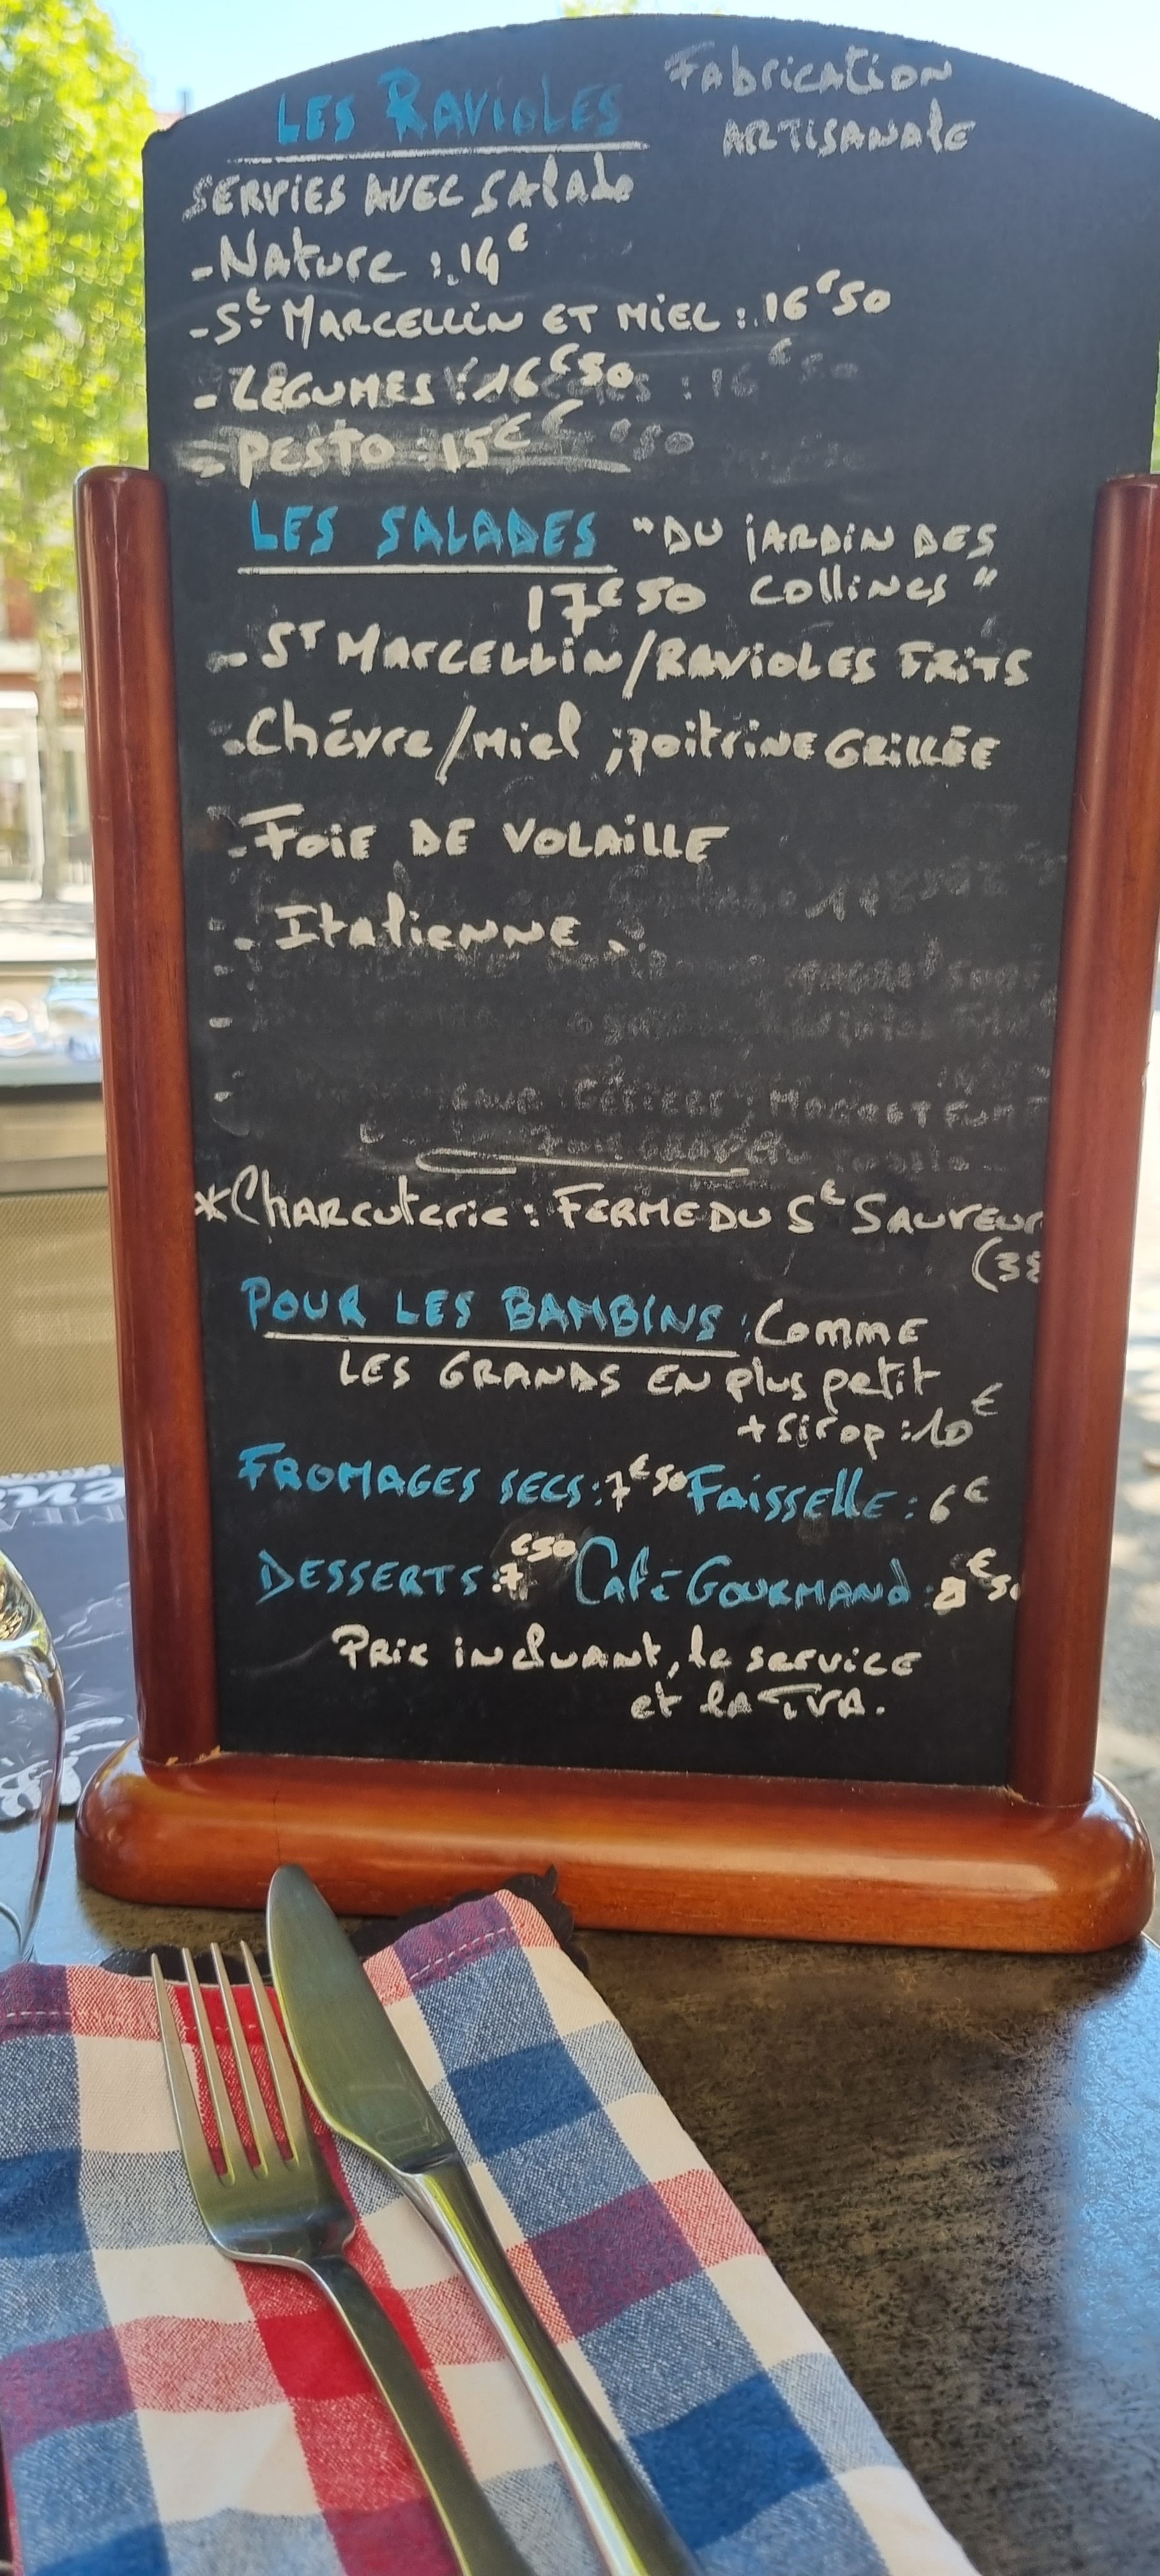 LES RAVIOLES Fabrication
ARTISANALE
SERVIES AVEC SALADE
- Nature : 14€
- St MARCELLIN ET MIEL : 16€50
- LÉGUMES : 16€50
- PESTO : 15€
LES SALADES "DU JARDIN DES
17€50 COLLINES"
- ST MARCELLIN/RAVIOLES FRITS
- Chévre/miel ; poitrine GRILLÉE
- FOIE DE VOLAILLE
- Italienne.
* CHARCUTERIE : FERME DU St SAUVEUR
(38
POUR LES BAMBINS : COMME
LES GRANDS EN plus petit
+ sirop : 10€
FROMAGES SECS : 7€50 FAISSELLE : 6€
DESSERTS : 7€50 Café GOURMAND :
PRIX incluant, le service
et la TVA.